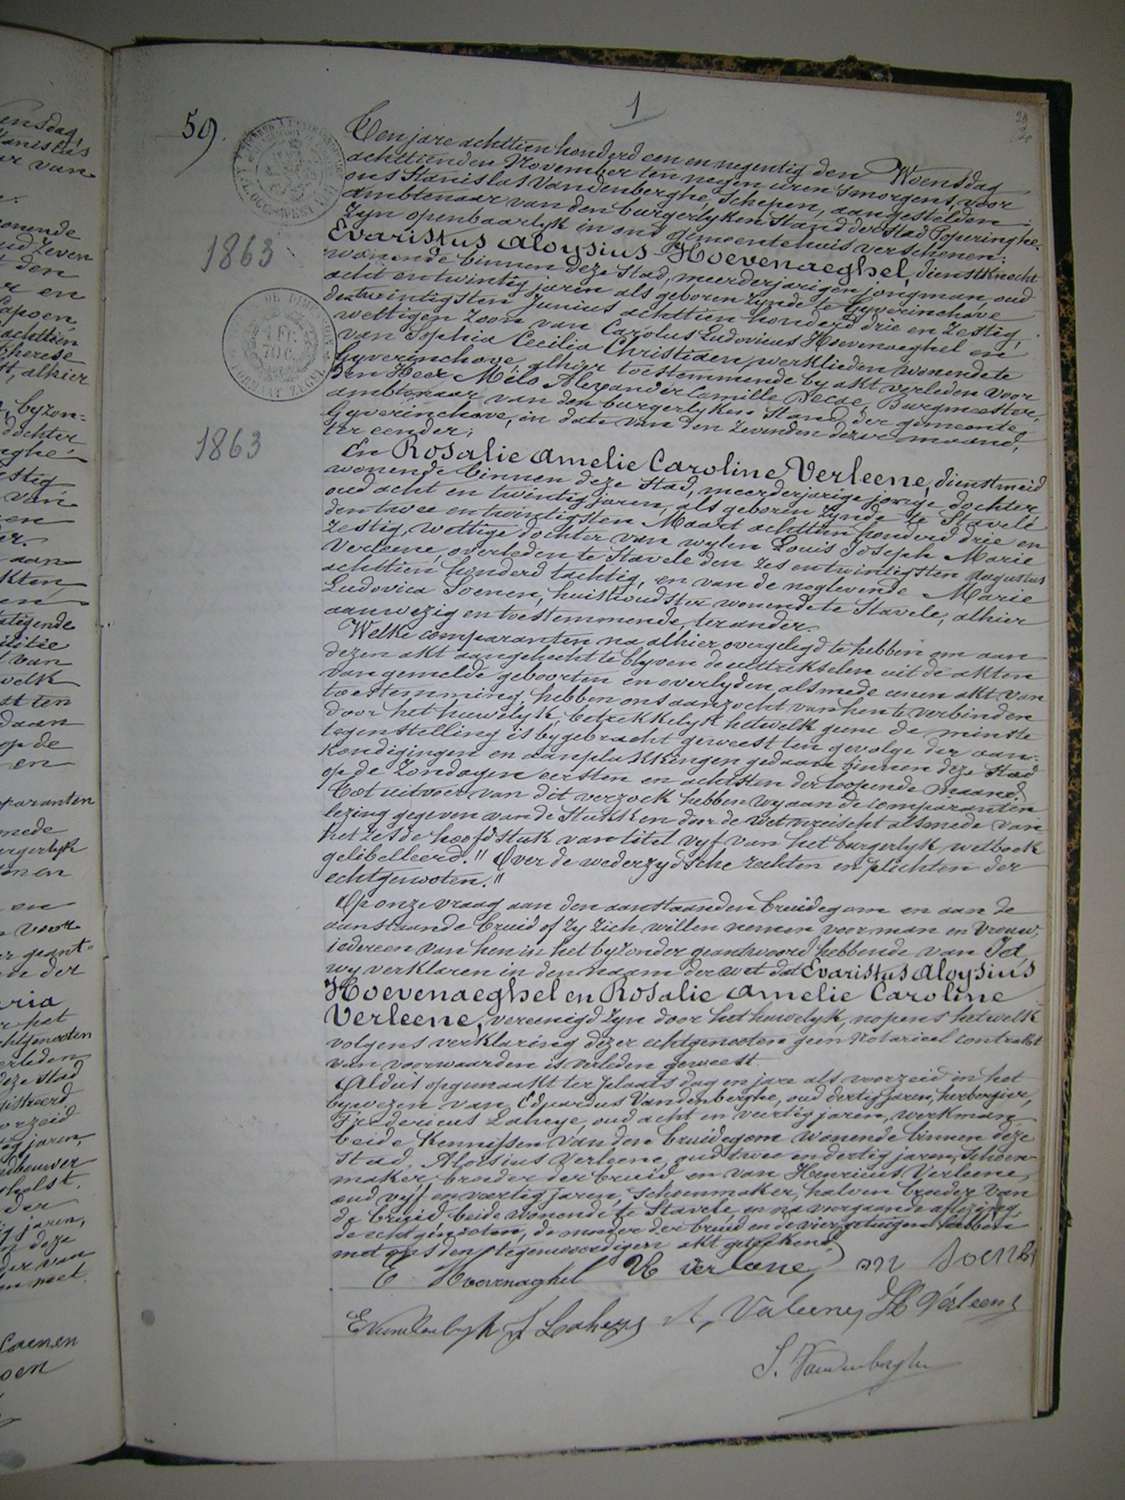 1
59.
Ten jare achttien honderd een en negentig den Woensdag
achttienden November ten negen uren 's morgens, voor
ons Stanislas Vandenberghe, Schepen, aangestelden
ambtenaar van den burgerlyken Stand der stad Poperinghe
zyn openbaarlyk in ons gemeentehuis verschenen:
1863
Evaristus Aloysius Hoevenaeghel, dienstknecht
wonende binnen deze stad, meerderjarigen jongman, oud
acht en twintig jaren als geboren zynde te Gyverinchove
den twintigsten Junius achttien honderd drie en zestig,
wettigen zoon van Carolus Ludovicus Hoevenaeghel en
van Sophia Cecilia Christiaen, werklieden wonende te
Gyverinchove, alhier toestemmende by akt verleden voor
den Heer Mélo Alexander Camille Decae, Burgmeester,
ambtenaar van den burgerlyken Stand der gemeente
Gyverinchove, in date van den zevenden dezer maand,
ter eender;
1863
En Rosalie Amelie Caroline Verleene, dienstmeid
wonende binnen deze Stad, meerderjarige jonge dochter
oud acht en twintig jaren, als geboren zynde te Stavele
den twee en twintigsten Maart achttien honderd drie en
zestig, wettige dochter van wylen Louis Joseph Marie
Verleene, overleden te Stavele den zes en twintigsten Augustus
achttien honderd tachtig, en van de noglevende Marie
Ludovica Soenen, huishoudster wonende te Stavele, alhier
aanwezig en toestemmende, ter ander.
Welke comparanten na alhier overgelegd te hebben om aan
dezen akt aangehecht te blyven de uittrekselen uit de akten
van gemelde geboorten en overlyden, alsmede eenen akt van
toestemming, hebben ons aanzocht van hen te verbinden
door het huwelyk, betrekkelyk hetwelk geene de minste
tegenstelling is bygebracht geweest ten gevolge der aan-
kondigingen en aanplakkingen gedaan binnen deze Stad
op de Zondagen eersten en achtsten der loopende maand.
Tot uitvoer van dit verzoek hebben wy aan de comparanten
lezing gegeven van de Stukken door de Wet vereischt alsmede van
het zesde hoofdstuk van titel vyf van het burgerlyk wetboek
gelibelleerd: "Over de wederzydsche rechten en plichten der
echtgenooten."
Op onze vraag aan den aanstaanden bruidegom en aan de
aanstaande bruid of zy zich willen nemen voor man en vrouw,
iedereen van hen in het byzonder geantwoord hebbende van Ja,
wy verklaren in den naam der wet dat Evaristus Aloysius
Hoevenaeghel en Rosalie Amelie Caroline
Verleene, vereenigd zyn door het huwelyk, nopens hetwelk
volgens verklaring dezer echtgenooten geen Notarieel contrakt
van voorwaarden is verleden geweest.
Aldus opgemaakt ter plaats dag en jare als voorzeid in het
bywezen van Eduardus Vandenberghe, oud dertig jaren, herbergier,
Fredericus Laheye, oud acht en veertig jaren, werkman
beide kennissen van den bruidegom wonende binnen deze
Stad, Aloisius Verleene, oud twee en dertig jaren, Schoen-
maker, broeder der bruid en van Henricus Verleene,
oud vyf en veertig jaren, Schoenmaker, halven broeder van
de bruid, beide wonende te Stavele, en na voorgaande aflezing,
de echtgenooten, de moeder der bruid en de vier getuigen hebben
met ons den tegenwoordigen akt geteekend.
E Hoevenaghel R verleene, Soenen
E Vandenberghe F Laheye A, Verleene, H Verleene
S. Vandenberghe